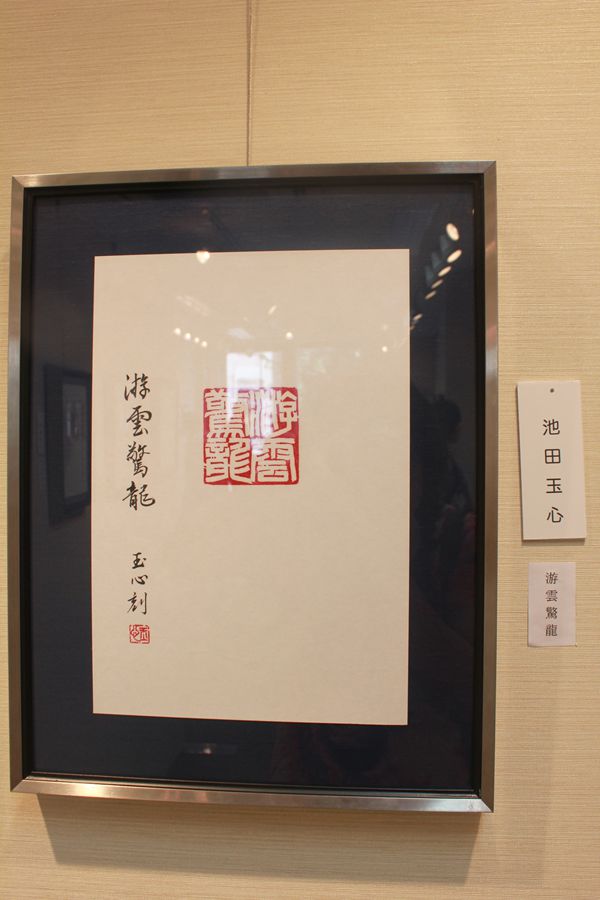 游雲驚龍
玉心刻
游雲驚龍
玉心
池田玉心
游雲驚龍